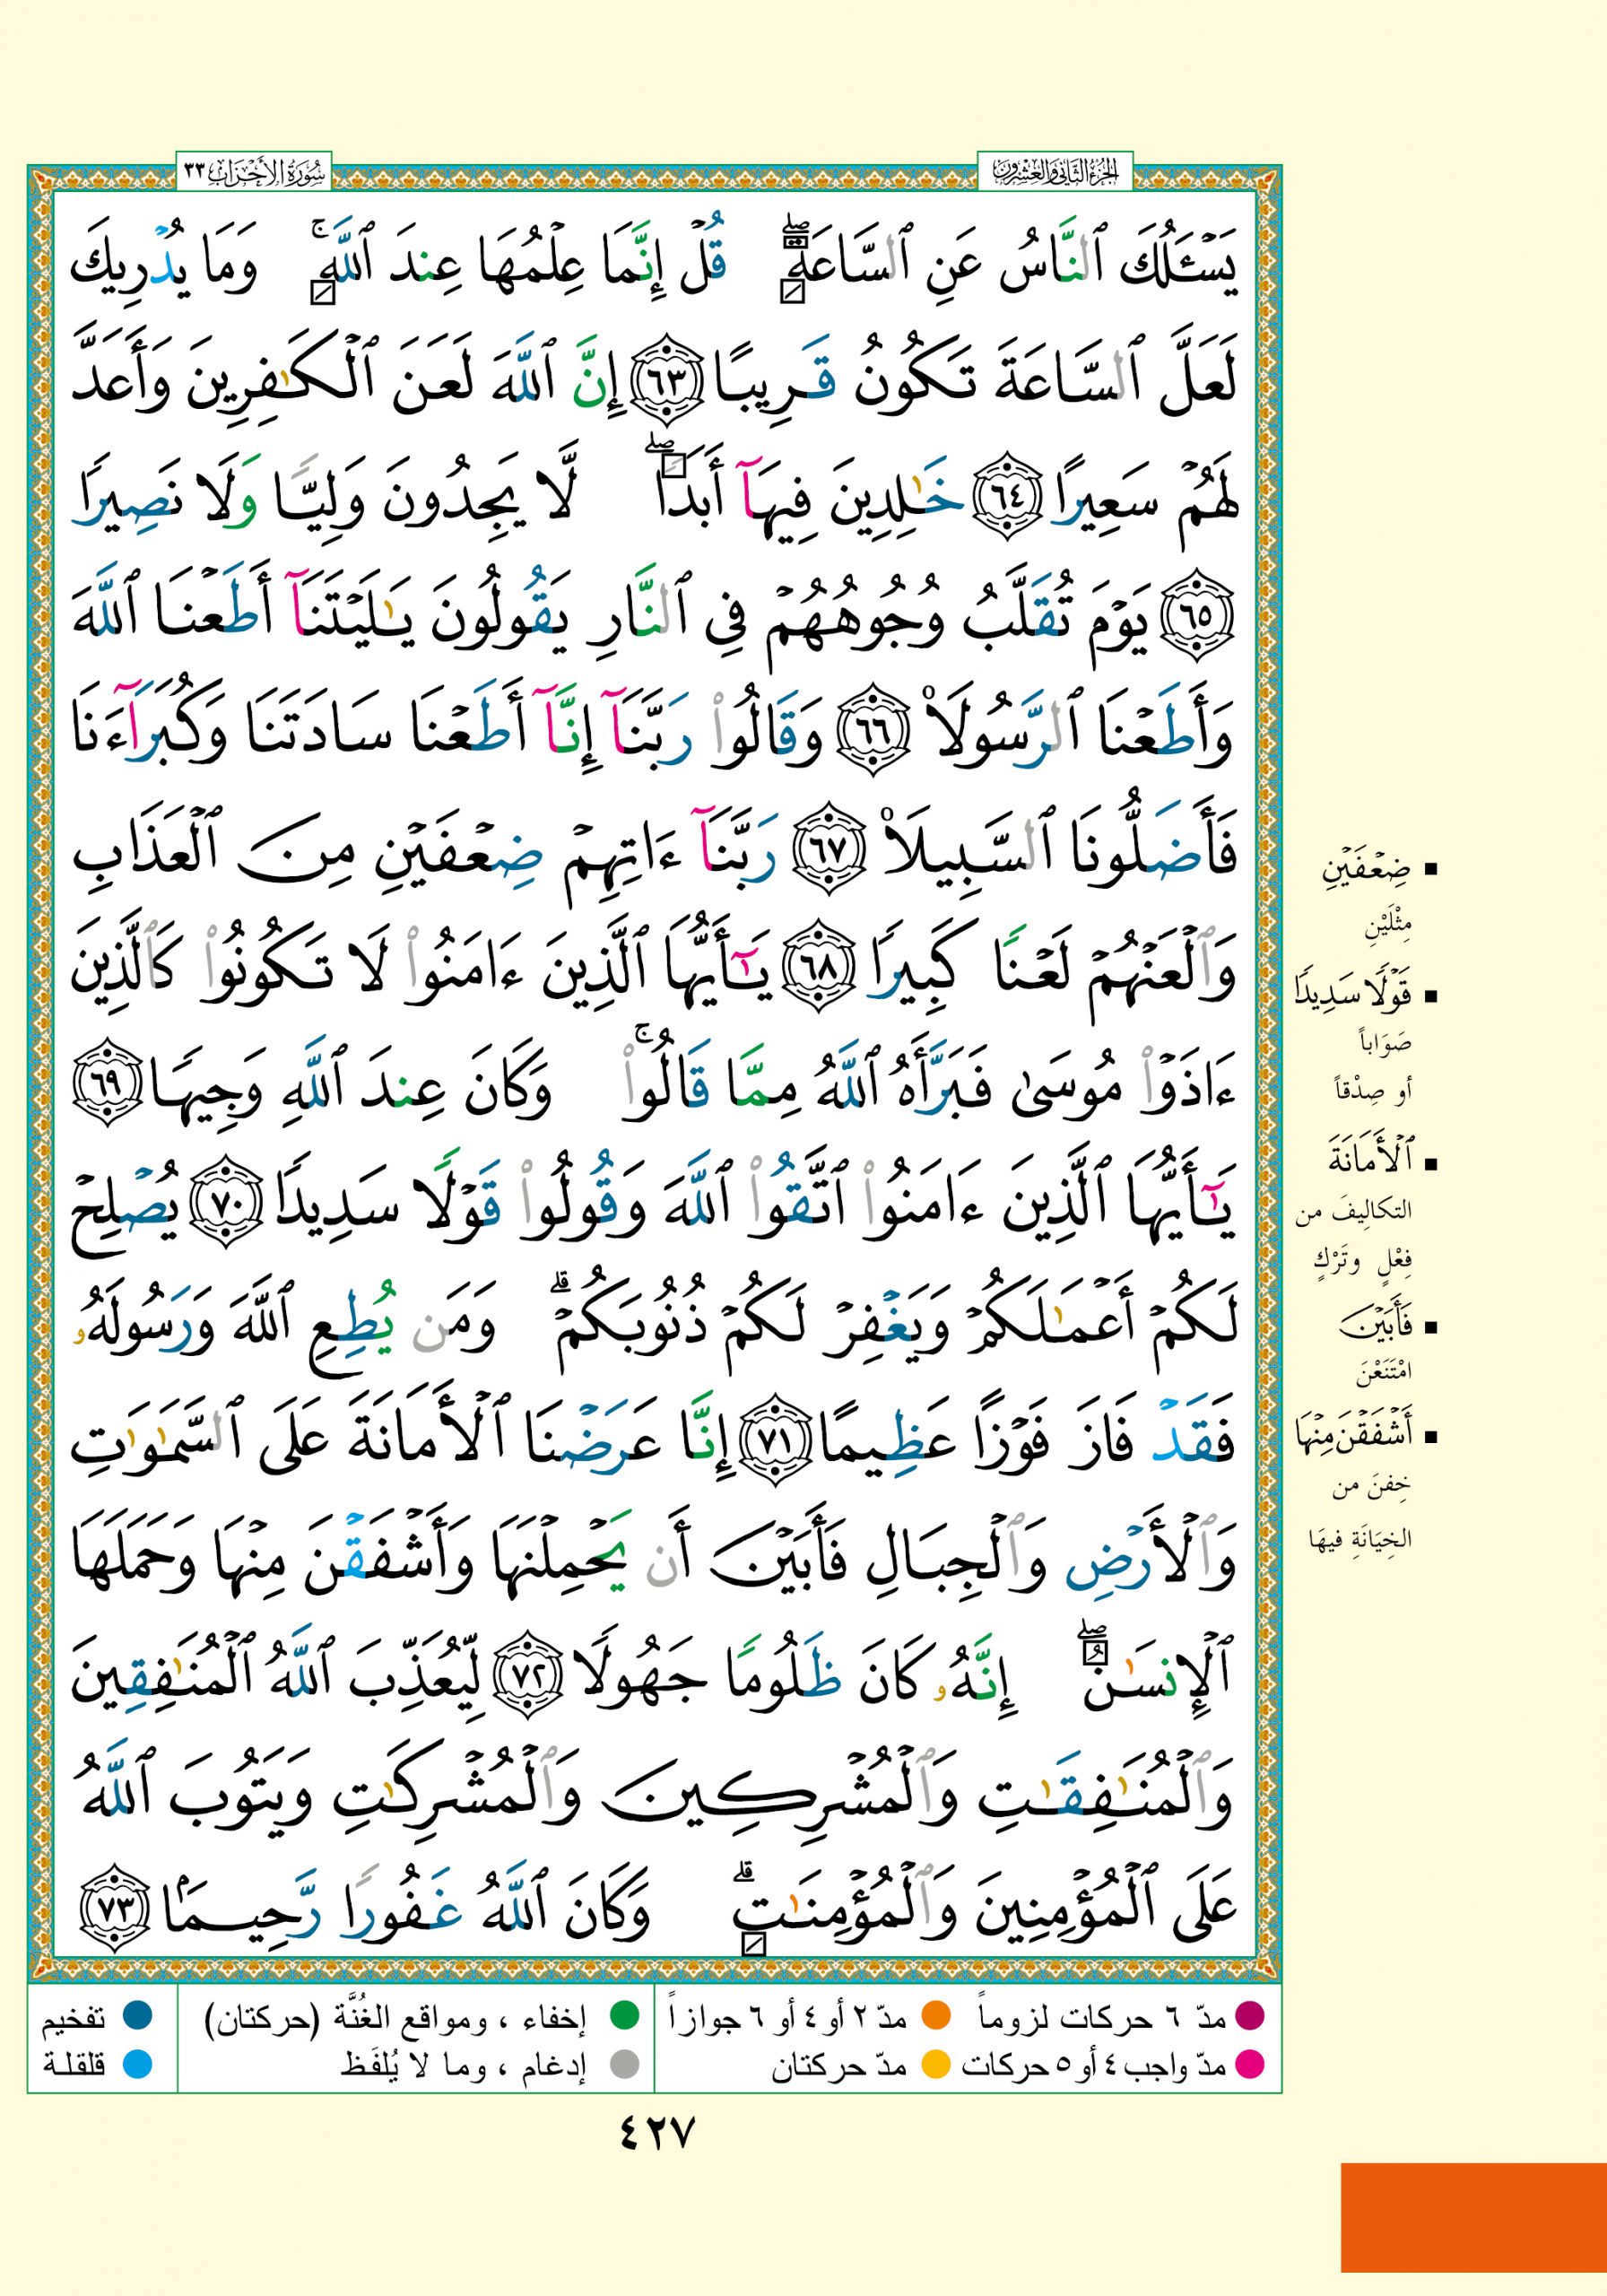 الجزء الثاني والعشرون
سورة الأحزاب ٣٣
يَسْـَٔلُكَ ٱلنَّاسُ عَنِ ٱلسَّاعَةِ ۖ قُلْ إِنَّمَا عِلْمُهَا عِندَ ٱللَّهِ ۚ وَمَا يُدْرِيكَ
لَعَلَّ ٱلسَّاعَةَ تَكُونُ قَرِيبًا ٦٣ إِنَّ ٱللَّهَ لَعَنَ ٱلْكَـٰفِرِينَ وَأَعَدَّ
لَهُمْ سَعِيرًا ٦٤ خَـٰلِدِينَ فِيهَآ أَبَدًا ۖ لَّا يَجِدُونَ وَلِيًّا وَلَا نَصِيرًا
٦٥ يَوْمَ تُقَلَّبُ وُجُوهُهُمْ فِى ٱلنَّارِ يَقُولُونَ يَـٰلَيْتَنَآ أَطَعْنَا ٱللَّهَ
وَأَطَعْنَا ٱلرَّسُولَا۠ ٦٦ وَقَالُوا۟ رَبَّنَآ إِنَّآ أَطَعْنَا سَادَتَنَا وَكُبَرَآءَنَا
فَأَضَلُّونَا ٱلسَّبِيلَا۠ ٦٧ رَبَّنَآ ءَاتِهِمْ ضِعْفَيْنِ مِنَ ٱلْعَذَابِ
وَٱلْعَنْهُمْ لَعْنًا كَبِيرًا ٦٨ يَـٰٓأَيُّهَا ٱلَّذِينَ ءَامَنُوا۟ لَا تَكُونُوا۟ كَٱلَّذِينَ
ءَاذَوْا۟ مُوسَىٰ فَبَرَّأَهُ ٱللَّهُ مِمَّا قَالُوا۟ ۚ وَكَانَ عِندَ ٱللَّهِ وَجِيهًا ٦٩
يَـٰٓأَيُّهَا ٱلَّذِينَ ءَامَنُوا۟ ٱتَّقُوا۟ ٱللَّهَ وَقُولُوا۟ قَوْلًا سَدِيدًا ٧٠ يُصْلِحْ
لَكُمْ أَعْمَـٰلَكُمْ وَيَغْفِرْ لَكُمْ ذُنُوبَكُمْ ۗ وَمَن يُطِعِ ٱللَّهَ وَرَسُولَهُۥ
فَقَدْ فَازَ فَوْزًا عَظِيمًا ٧١ إِنَّا عَرَضْنَا ٱلْأَمَانَةَ عَلَى ٱلسَّمَـٰوَٰتِ
وَٱلْأَرْضِ وَٱلْجِبَالِ فَأَبَيْنَ أَن يَحْمِلْنَهَا وَأَشْفَقْنَ مِنْهَا وَحَمَلَهَا
ٱلْإِنسَـٰنُ ۖ إِنَّهُۥ كَانَ ظَلُومًا جَهُولًا ٧٢ لِّيُعَذِّبَ ٱللَّهُ ٱلْمُنَـٰفِقِينَ
وَٱلْمُنَـٰفِقَـٰتِ وَٱلْمُشْرِكِينَ وَٱلْمُشْرِكَـٰتِ وَيَتُوبَ ٱللَّهُ
عَلَى ٱلْمُؤْمِنِينَ وَٱلْمُؤْمِنَـٰتِ ۗ وَكَانَ ٱللَّهُ غَفُورًا رَّحِيمًۢا ٧٣
▪ ضِعْفَيْنِ
مِثْلَيْنِ
▪ قَوْلًا سَدِيدًا
صَوَاباً
أو صِدْقاً
▪ ٱلْأَمَانَةَ
التكاليفَ من
فِعْلٍ وتَرْكٍ
▪ فَأَبَيْنَ
امْتَنَعْنَ
▪ أَشْفَقْنَ مِنْهَا
خِفنَ من
الخِيَانَةِ فيهَا
مدّ ٦ حركات لزوماً ● مدّ ٢ أو ٤ أو ٦ جوازاً ● إخفاء ، ومواقع الغُنَّة (حركتان) ● تفخيم
مدّ واجب ٤ أو ٥ حركات ● مدّ حركتان ● إدغام ، وما لا يُلفَظ ● قلقلة
٤٢٧